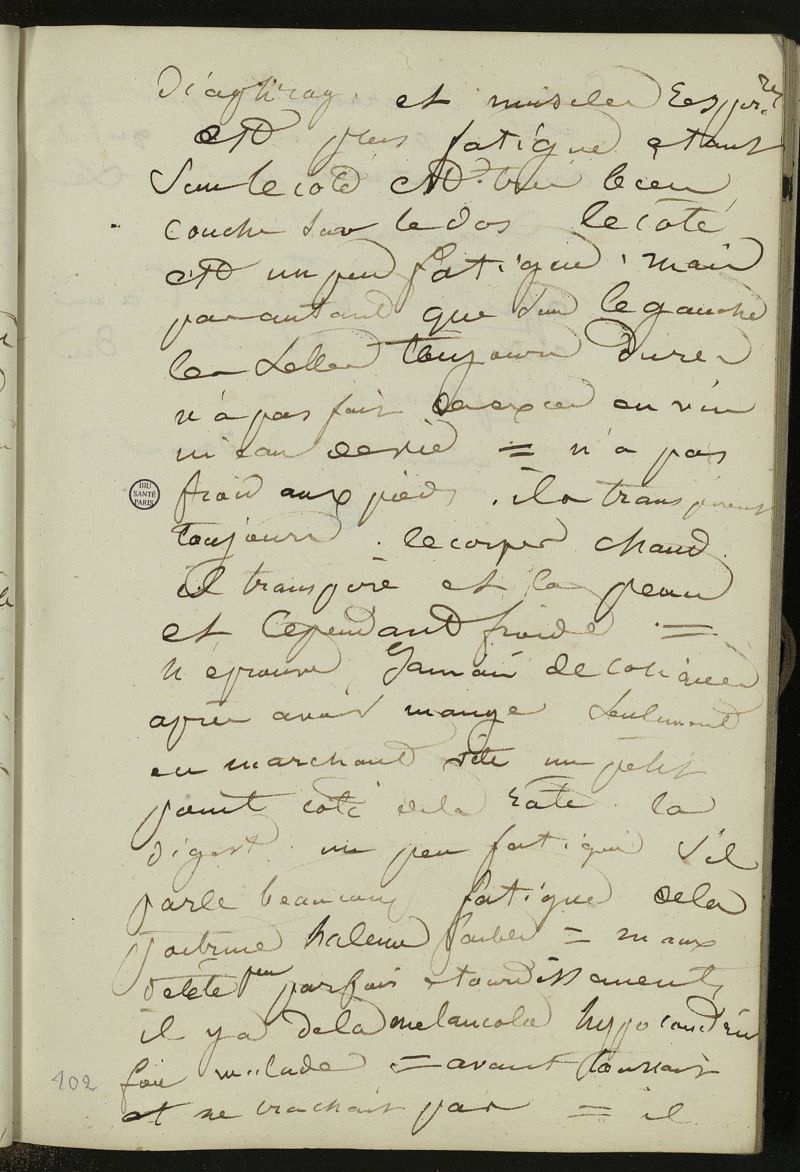 Diaphrag. et muscles Respir. res
est plus fatigué etant
Sur le coté est tres bien
couche sur le dos le coté
est un peu fatigué, mais
pas autant que sur le gauche
les selles toujours dures
n'a pas fait d'exces en vin
ni eau de vie = n'a pas
froid aux pieds. ils transpirent
toujours. le corps chaud
il transpire et la peau
est cependant froide =
n'eprouve Jamais de coliques
apres avoir mangé seulement
en marchant vite un petit
point coté de la Rate la
digest. un peu fatigué S'il
parle beaucoup fatigue de la
poitrine haleine faible = maux
de tete peu parfois etourdissements
il y a de la melancolie hypocondrie
foie malade = avant toussait
et ne crachait pas = il
BIU
SANTÉ
PARIS
102